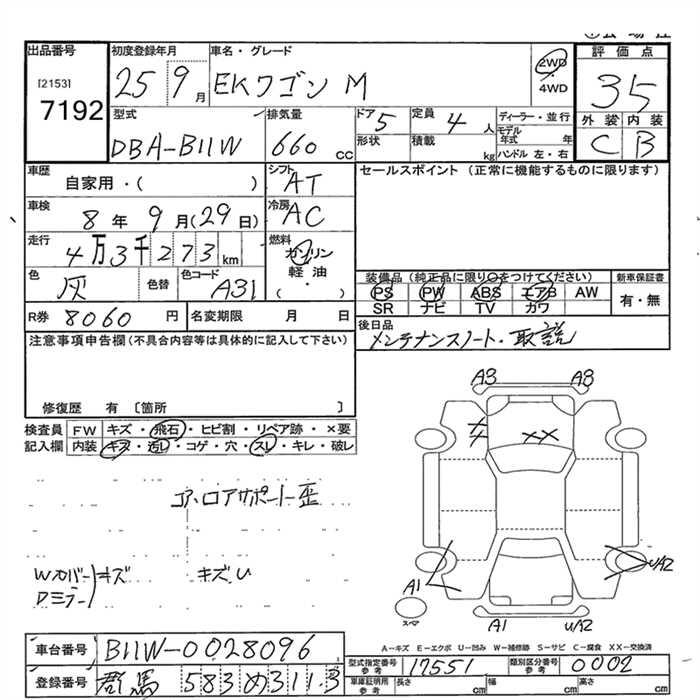 出品番号 初度登録年月 車名・グレード 評価点
[2153] 7192 25 9月 EKワゴン M 2WD ・ 4WD 35
型式 排気量 ドア 5 定員 4 人 ディーラー・並行 外装 内装
DBA-B11W 660 cc 形状 積載 kg モデル年式 年 ハンドル 左・右 C B
車歴 自家用・( ) シフト AT セールスポイント (正常に機能するものに限ります)
車検 8年 9月(29日) 冷房 AC
走行 4万3千273km 燃料 ガソリン 軽油 ・( )
色 灰 色替 色コード A31 装備品 (純正品に限り○をつけてください) 新車保証書
PS PW ABS エアB AW 有・無
SR ナビ TV カワ
R券 8060 円 名変期限 月 日 後日品
メンテナンスノート・取説
注意事項申告欄(不具合内容等は具体的に記入して下さい)
修復歴 有 〔箇所 〕
検査員 FW キズ ・ 飛石 ・ ヒビ割 ・ リペア跡 ・ ×要
記入欄 内装 キズ・汚レ・コゲ・穴・スレ・キレ・破レ
A3 A3
XX
コア.ロアサポート歪
Wカバー キズ キズU
Dミラー
A1 UA2
スペア A1 UA2
A-キズ E-エクボ U-凹み W-補修跡 S-サビ C-腐食 XX-交換済
車台番号 B11W-0028096 型式指定番号 参考 17551 類別区分番号 参考 0002
登録番号 群馬 583 め 311.3 車庫証明用 参考 長さ cm 幅 cm 高さ cm